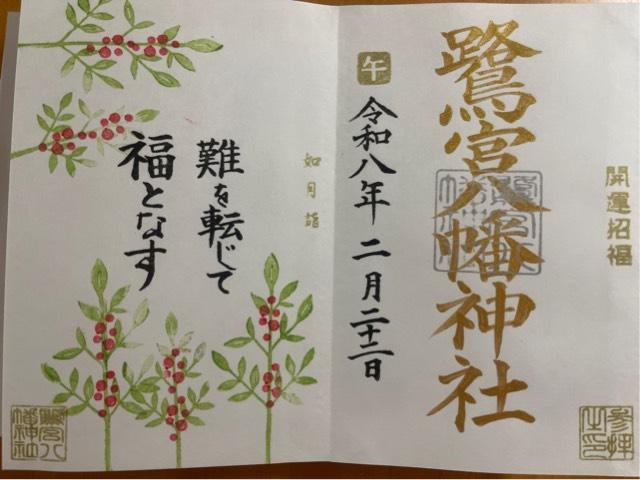 開運招福
鷺宮八幡神社
参拝
之印
午
令和八年 二月二十二日
如月詣
難を転じて
福となす
鷺宮八
幡神社